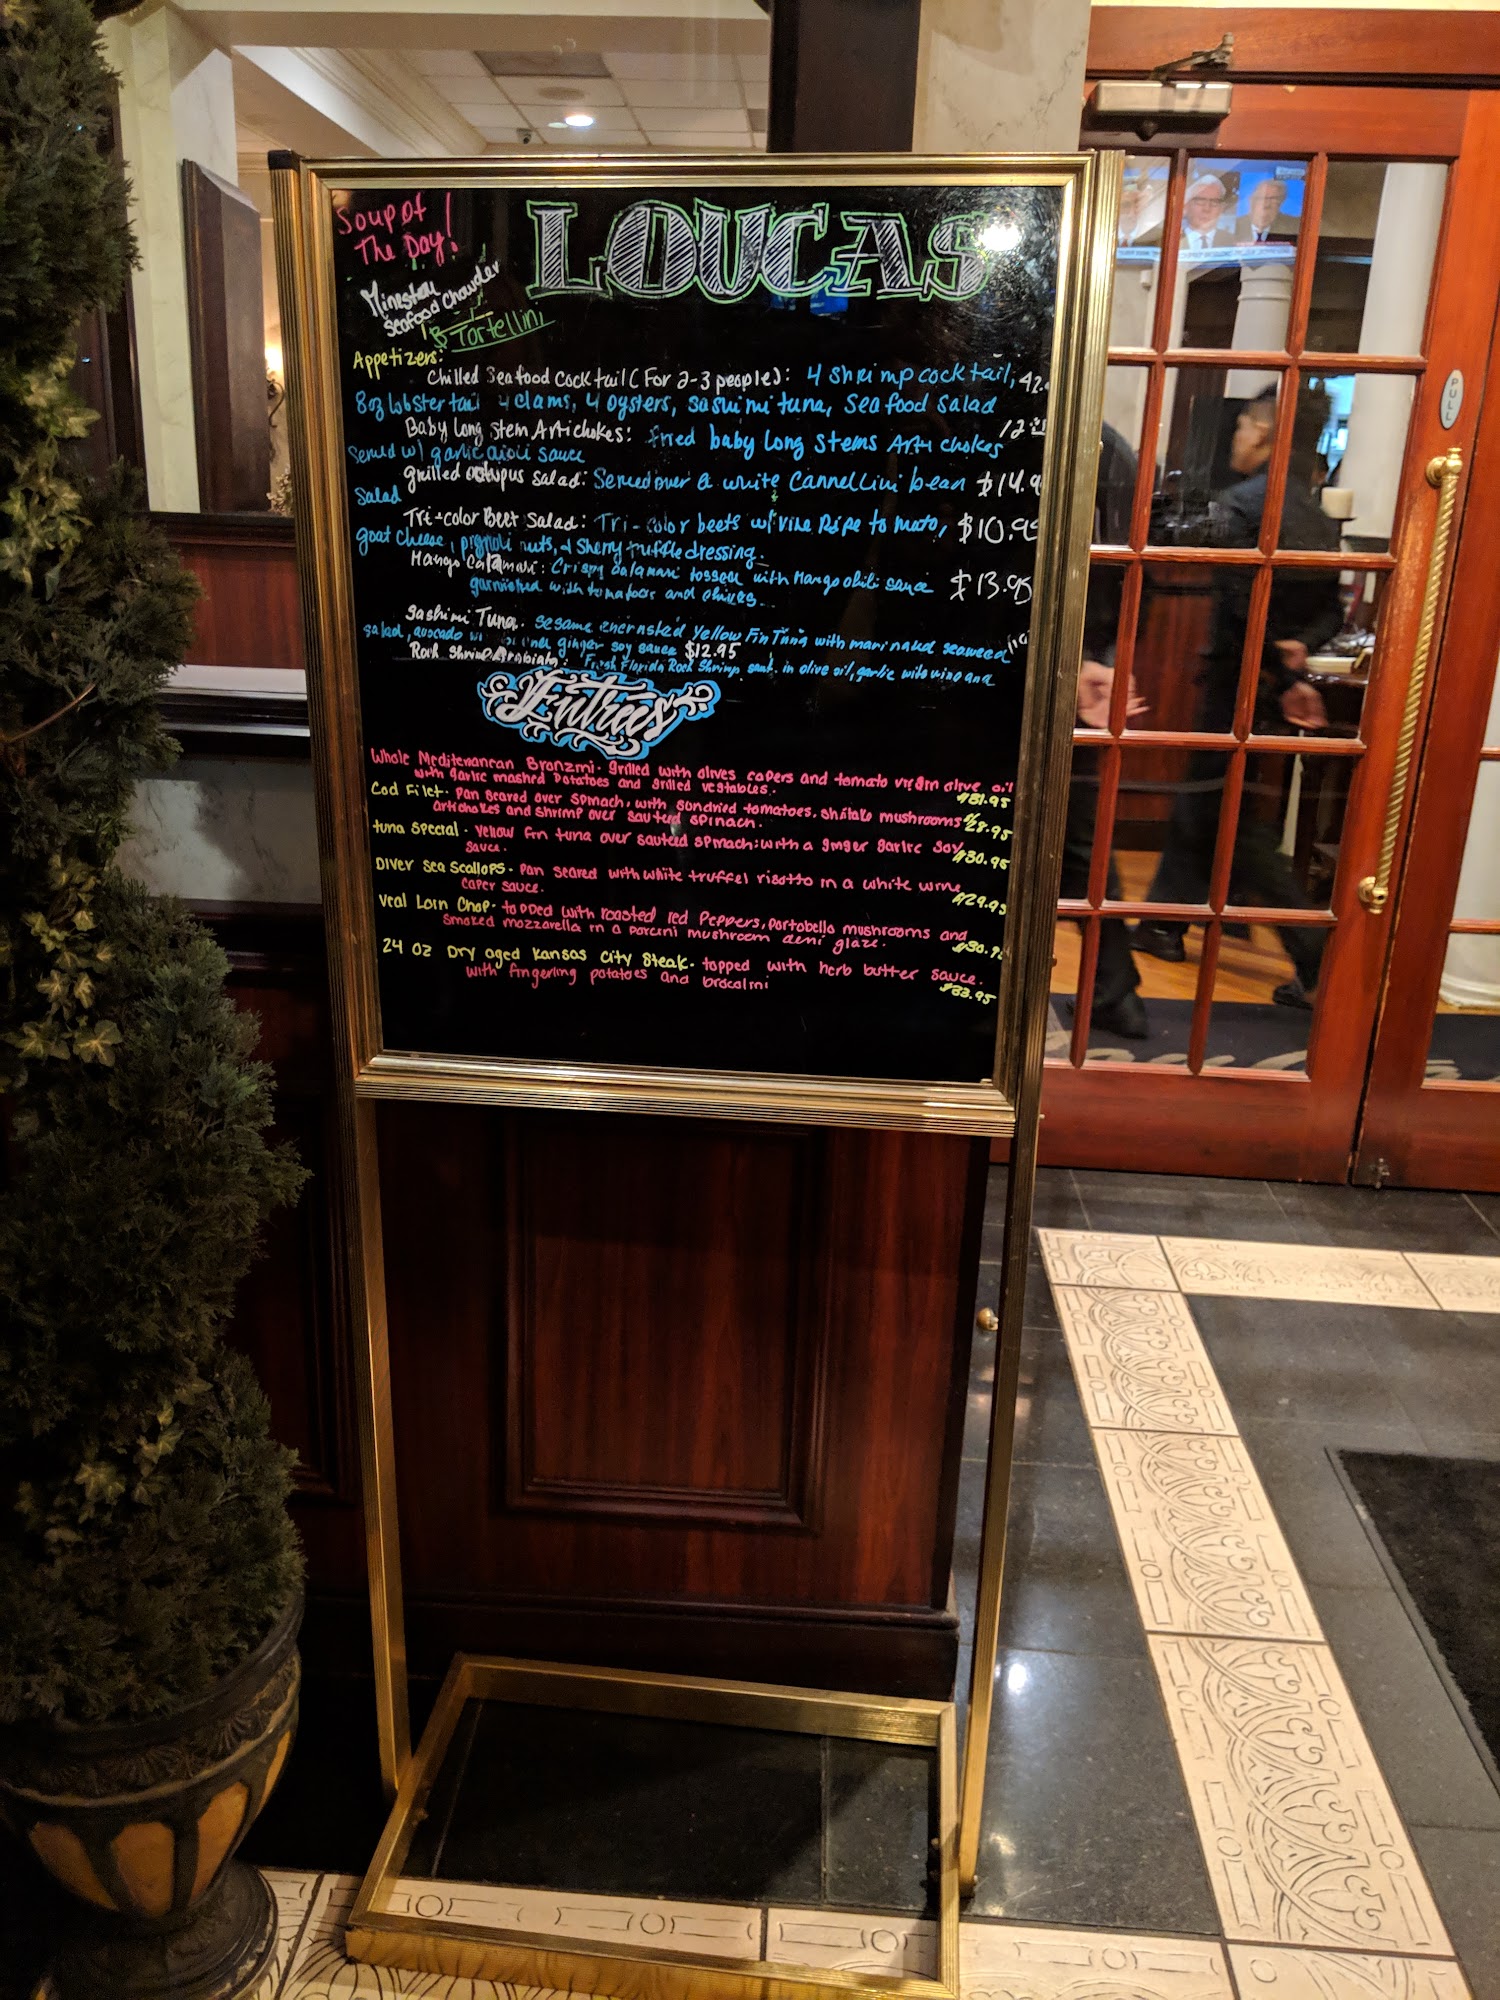 Soup of
The Day!
LOUCAS
Seafood Chowder
Tortellini
Appetizers:
Chilled Seafood Cocktail (For 2-3 people): 4 shrimp cocktail,
8oz lobster tail 4 clams, 4 oysters, sashimi tuna, seafood salad
Baby Long Stem Artichokes: fried baby long stems Artichokes
Served w/ garlic aioli sauce
Grilled octupus salad: Served over a white Cannellini bean $14.9
Salad
Tri-color Beet Salad: Tri-color beets w/ vine Ripe tomato, $10.95
goat cheese, pignoli nuts, & sherry truffle dressing.
Mango Calamari: Crispy calamari tossed with Mango chili sauce $13.95
garnished with tomatoes and chives..
Sashimi Tuna. sesame encrusted Yellow Fin Tuna with marinated seaweed
salad, avocado ginger soy sauce $12.95
Rock Shrimp Arabiata: Fresh Florida Rock Shrimp saut. in olive oil, garlic wite wino and
Entrees
Whole Mediterranean Bronzini. grilled with olives capers and tomato virgin olive oil
with garlic mashed potatoes and grilled vegetables. $31.95
Cod Filet. Pan seared over spinach, with sundried tomatoes, shitake mushrooms $28.95
artichokes and shrimp over sauteed spinach.
tuna special. Yellow fin tuna over sauteed spinach; with a ginger garlic soy
sauce. $30.95
Diver Sea Scallops. Pan seared with white truffel risotto in a white wine
caper sauce. $29.95
Veal Loin Chop. topped with roasted red peppers, portobello mushrooms and
smoked mozzarella in a porcini mushroom demi glaze. $30.9
24 oz Dry aged Kansas City Steak. topped with herb butter sauce.
with fingerling potatoes and brocolini $33.95
PULL